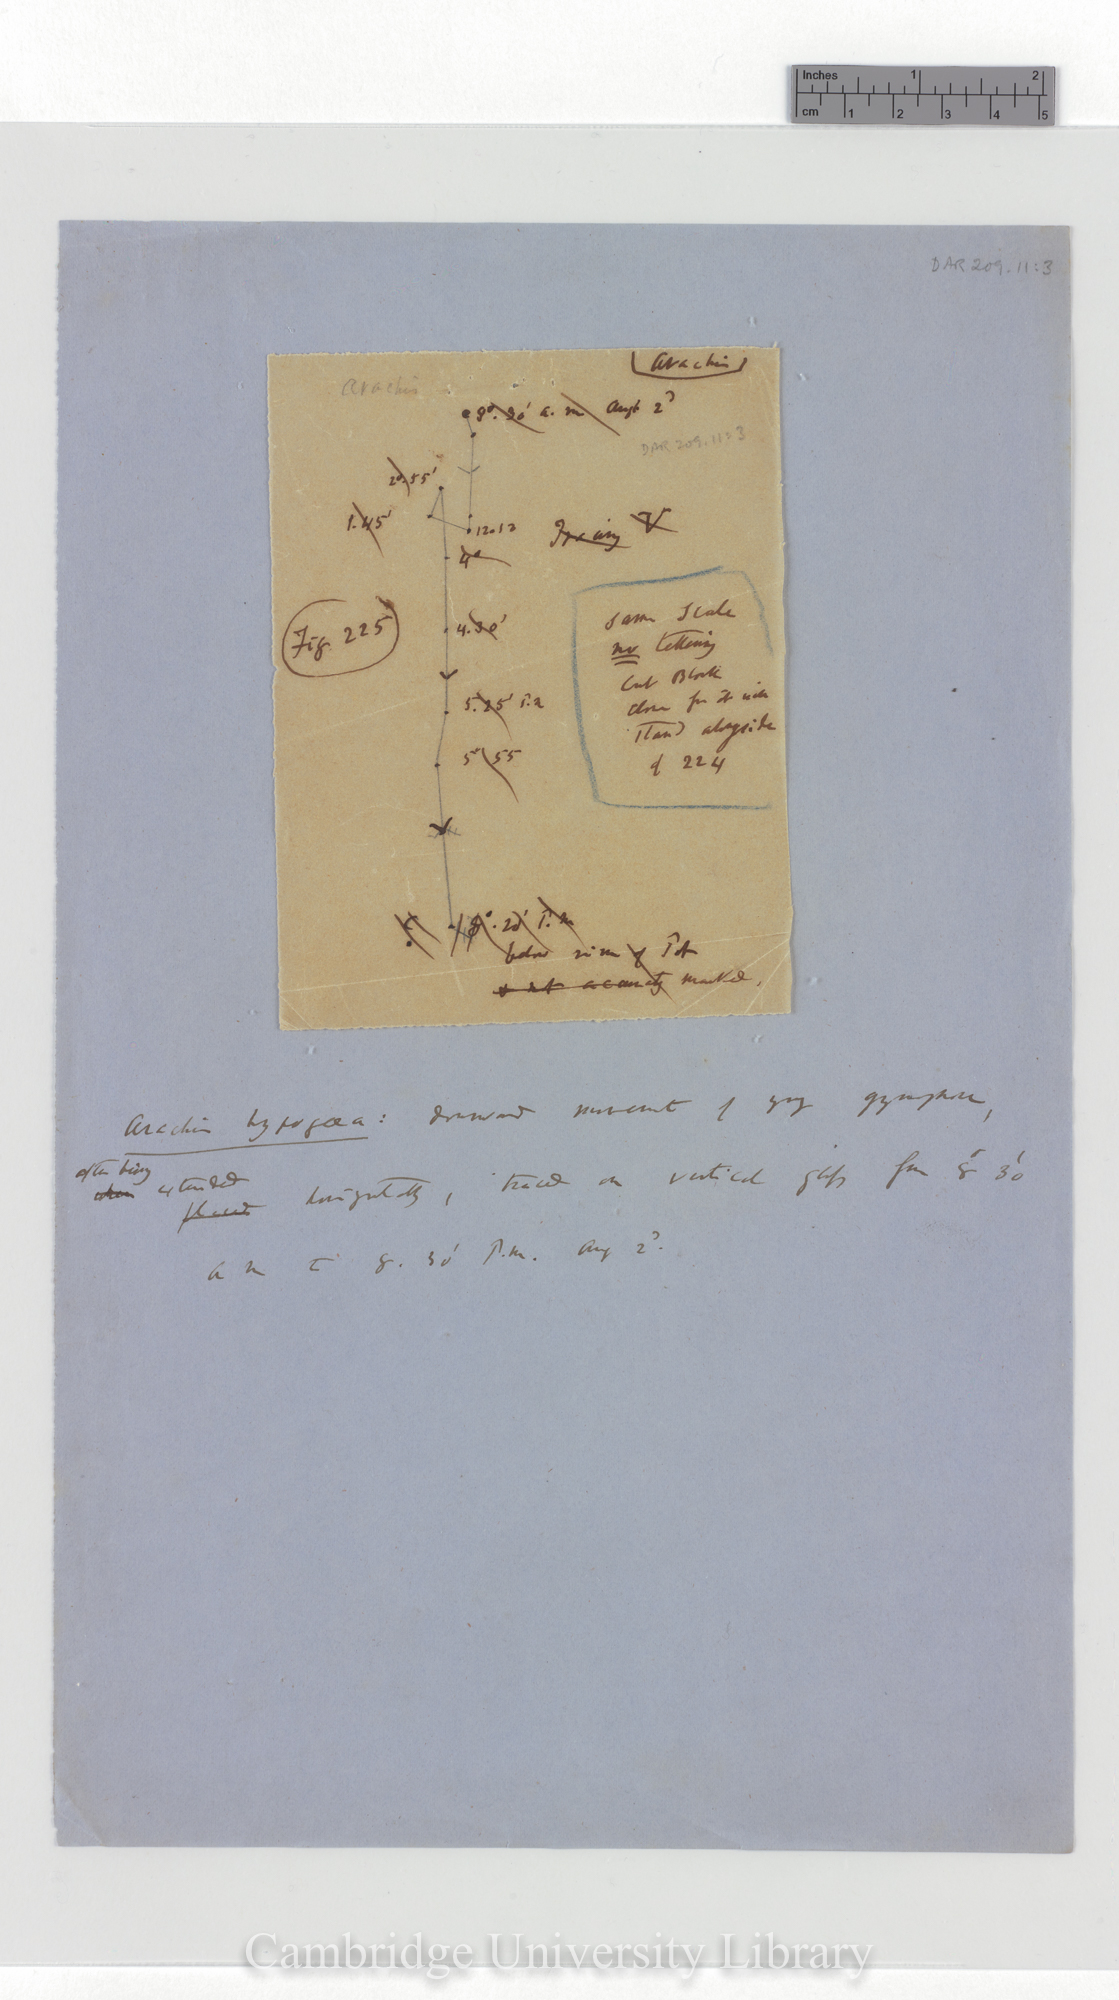 Inches 1 2
cm 1 2 3 4 5
DAR 209.11:3
Arachis
Arachis
8°. 30' a. m Augt 2d
DAR 209.11:3
2°.55'
1.45'
12.12
Tracing V
4°
Fig 225
4.30'
5.25' P.m
5° 55
Same Scale
no lettering
Cut Block
close for it will
stand alongside
of 224
8°. 20' P.m
below rim of Pot
& not accurately marked.
Arachis hypogœa: downward movement of young gynophore,
after being
when extended
placed horizontally, traced on vertical glass from 8° 30'
a m to 8. 30' P.m. Aug 2d.
Cambridge University Library